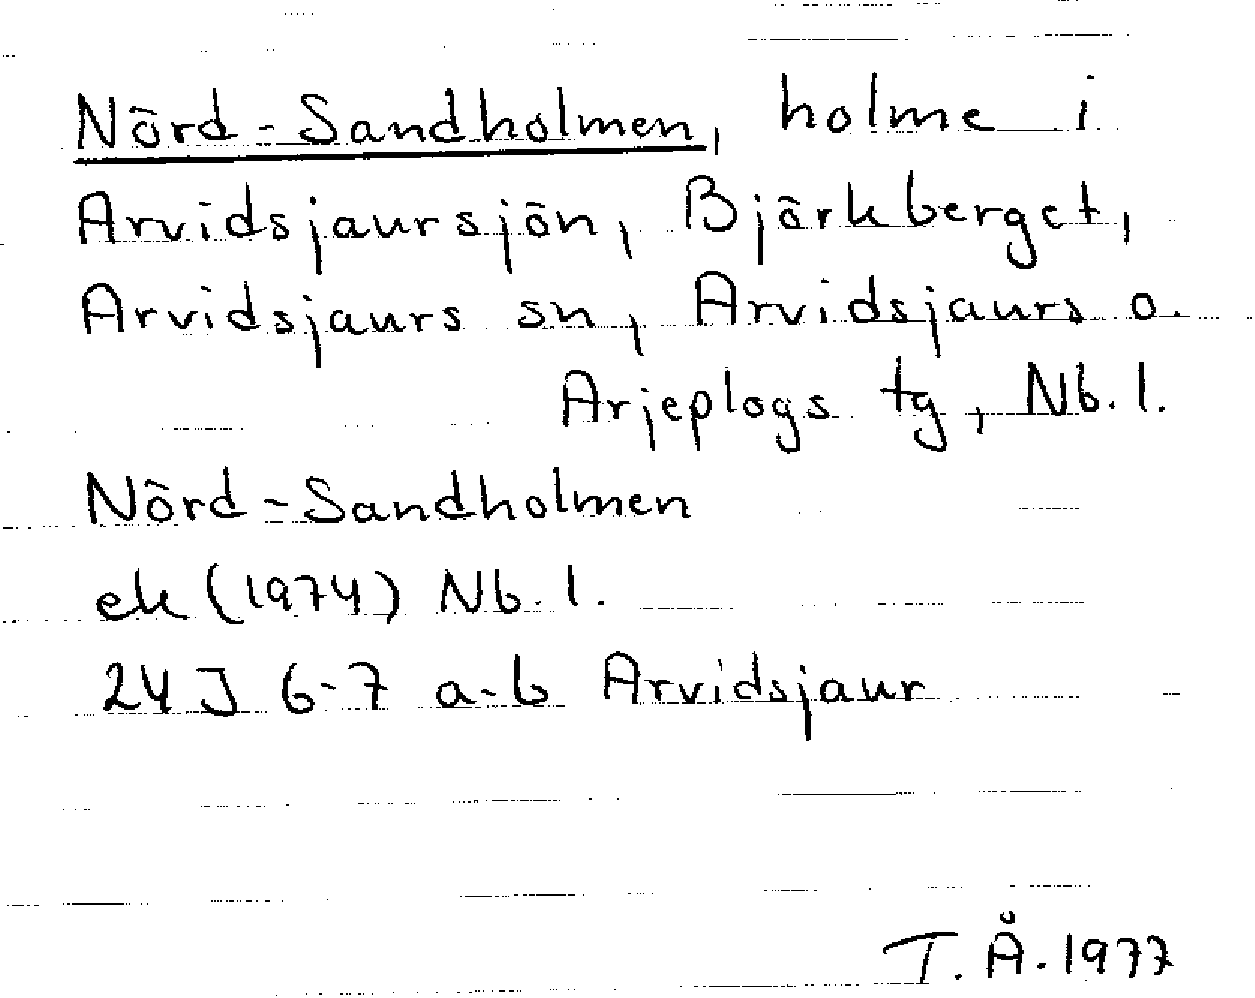 Nörd-Sandholmen, holme i
Arvidsjaursjön, Björkberget,
Arvidsjaurs sn, Arvidsjaurs o.
Arjeplogs tg, Nb.l.
Nörd-Sandholmen
ek (1974) Nb.l.
24 J 6-7 a-b Arvidsjaur
T.Å. 1977